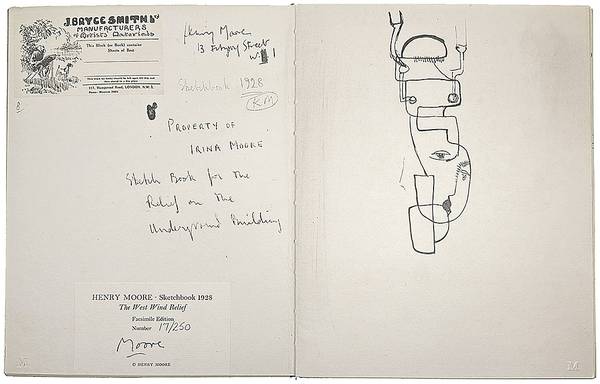 J. BRYCE SMITH Ld
MANUFACTURERS
of Artists' Materials
This Block (or Book) contains
Sheets of Best
This block (or book) should be left open till dry
117, Hampstead Road, LONDON, N.W. 1.
Henry Moore
13 Street
W. 1
Sketchbook 1928
RM
PROPERTY OF
IRINA MOORE
Sketch Book for the
Relief on the
Underground Building
HENRY MOORE · Sketchbook 1928
The West Wind Relief
Facsimile Edition
Number 17/250
Moore
© HENRY MOORE
M